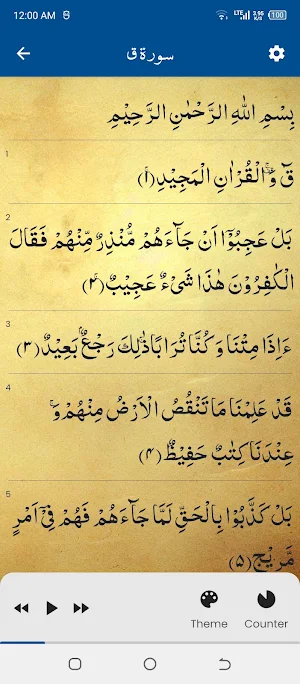 12:00 AM
LTE 3.95 K/S 100
سورة ق
بِسْمِ اللّٰهِ الرَّحْمٰنِ الرَّحِيْمِ
1
قٓ ۚ وَالْقُرْاٰنِ الْمَجِيْدِ (۱)
2
بَلْ عَجِبُوْۤا اَنْ جَآءَهُمْ مُّنْذِرٌ مِّنْهُمْ فَقَالَ
الْكٰفِرُوْنَ هٰذَا شَیْءٌ عَجِيْبٌ (۲)
3
ءَاِذَا مِتْنَا وَ كُنَّا تُرَابًا ۚ ذٰلِكَ رَجْعٌۢ بَعِيْدٌ (۳)
4
قَدْ عَلِمْنَا مَا تَنْقُصُ الْاَرْضُ مِنْهُمْ ۚ وَ
عِنْدَنَا كِتٰبٌ حَفِيْظٌ (۴)
5
بَلْ كَذَّبُوْا بِالْحَقِّ لَمَّا جَآءَهُمْ فَهُمْ فِیْۤ اَمْرٍ
مَّرِيْجٍ (۵)
Theme
Counter